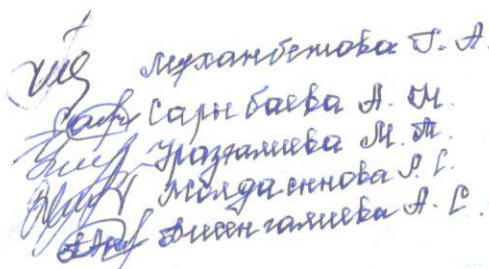 Муханбетова Г. А.
Сарыбаева А. М.
Уразгалиева М. Т.
Молдашинова Г. С.
Дисенгалиева А. С.